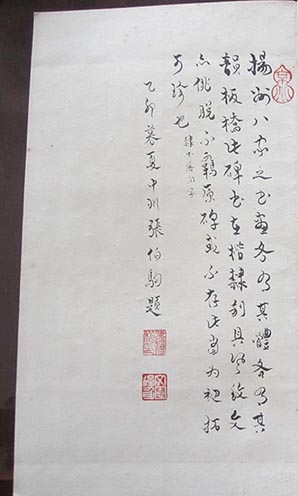 揚州八之書畫各有其體各有其
韻板橋此碑書在楷隸別具致文
亦佻脫不羈原碑或不存此當為初拓
可珍也
乙卯暮夏中州張伯駒題